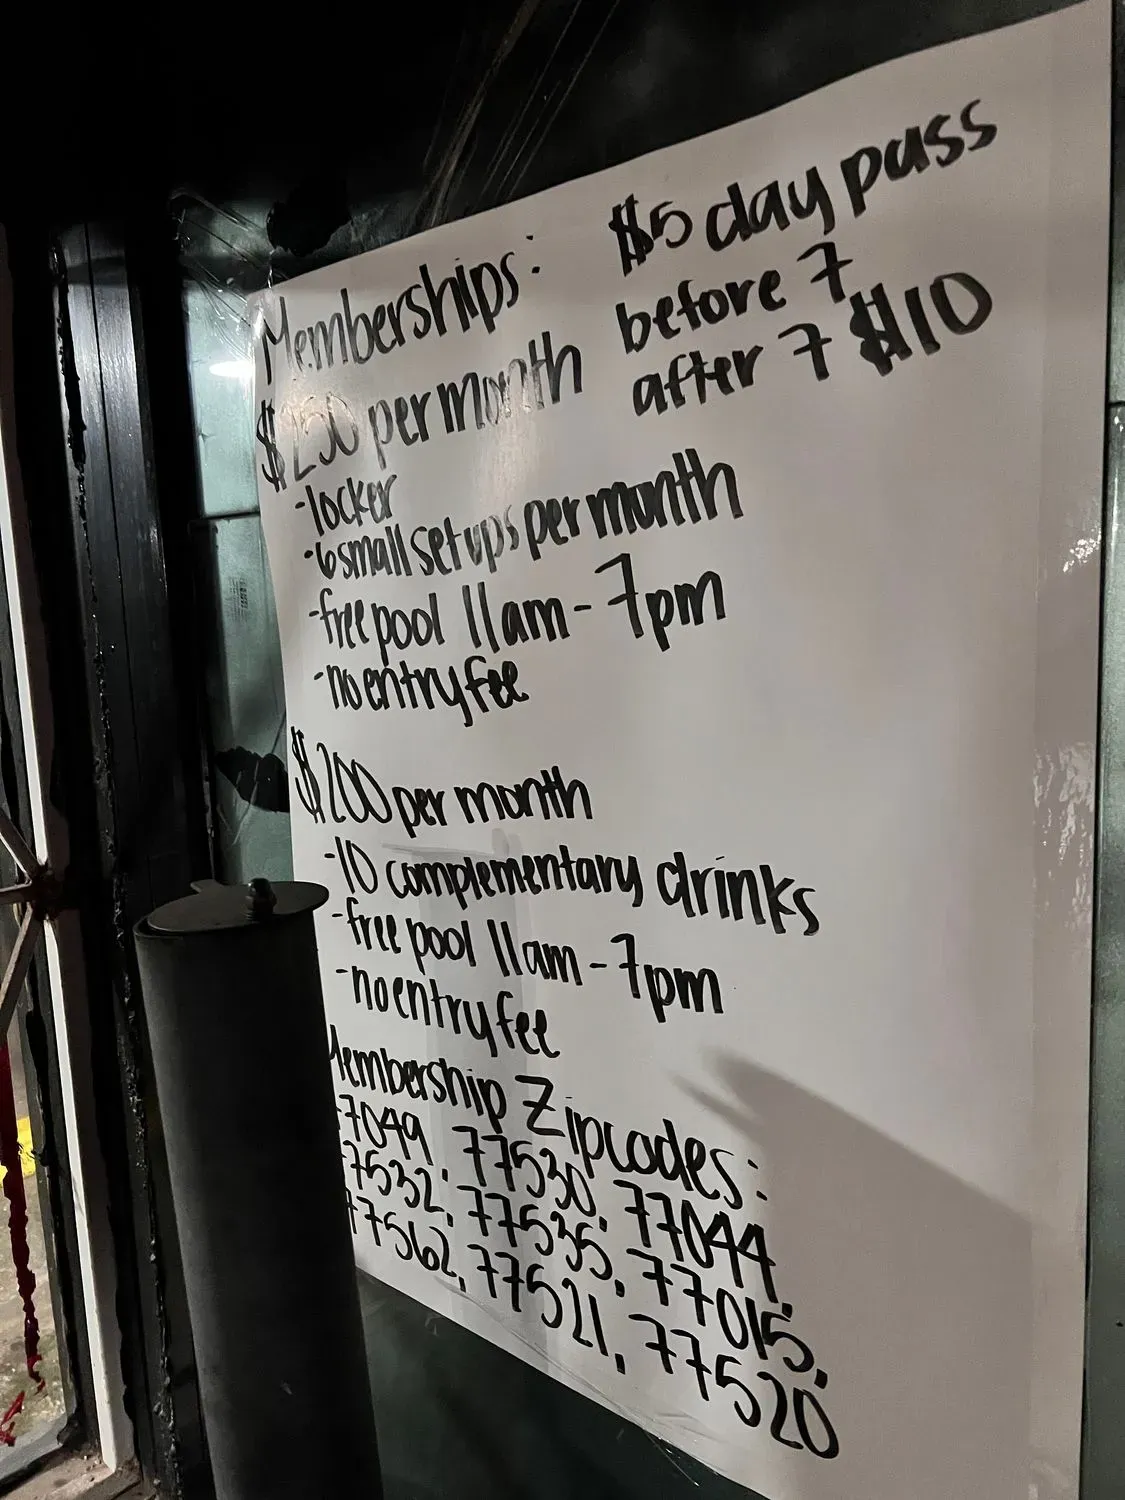 Memberships:
$250 per month
-locker
-6 small set ups per month
-free pool 11am-7pm
-no entry fee
$5 day pass
before 7
after 7 $10
$200 per month
-10 complementary drinks
-free pool 11am-7pm
-no entry fee
Membership Zipcodes:
77049, 77530, 77044,
77532, 77535, 77015,
77562, 77521, 77520